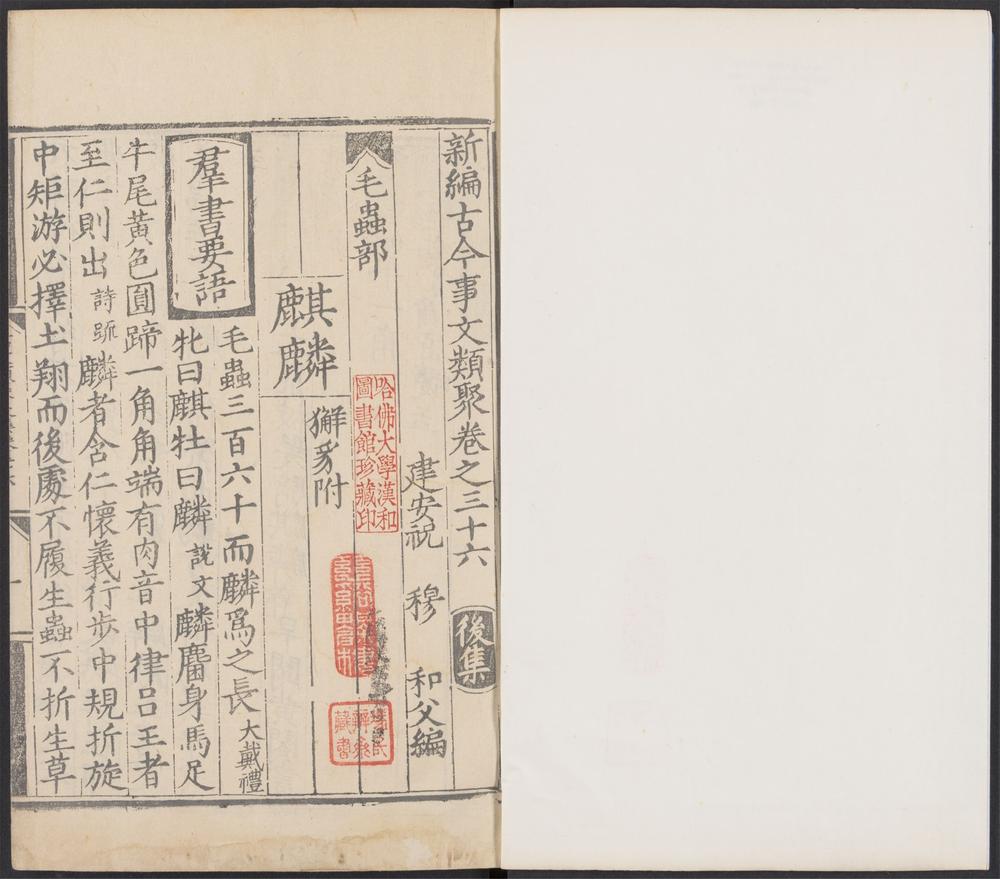 新編古今事文類聚卷之三十六 後集
建安祝 穆 和父編
毛蟲部
麒麟 獬豸附
羣書要語
毛蟲三百六十而麟爲之長大戴禮
牝曰麒牡曰麟說文麟麕身馬足
牛尾黃色圓蹄一角角端有肉音中律呂王者
至仁則出詩疏麟者含仁懷義行步中規折旋
中矩游必擇土翔而後處不履生蟲不折生草
哈佛大學漢和
圖書館珍藏印